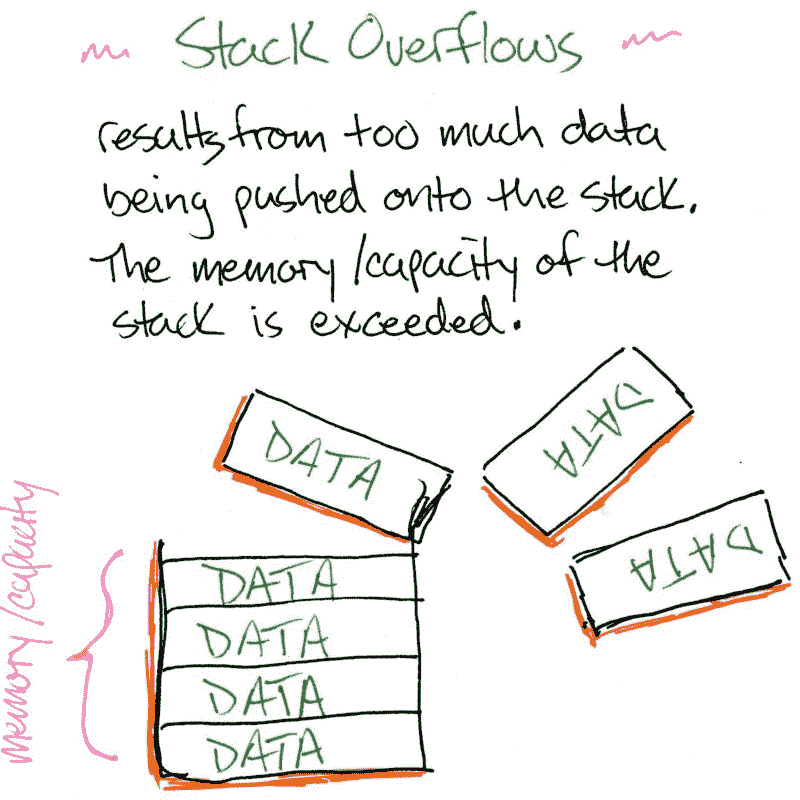 Stack Overflows
results from too much data
being pushed onto the stack.
The memory/capacity of the
stack is exceeded.
DATA
DATA
DATA
DATA
DATA
DATA
DATA
memory/capacity